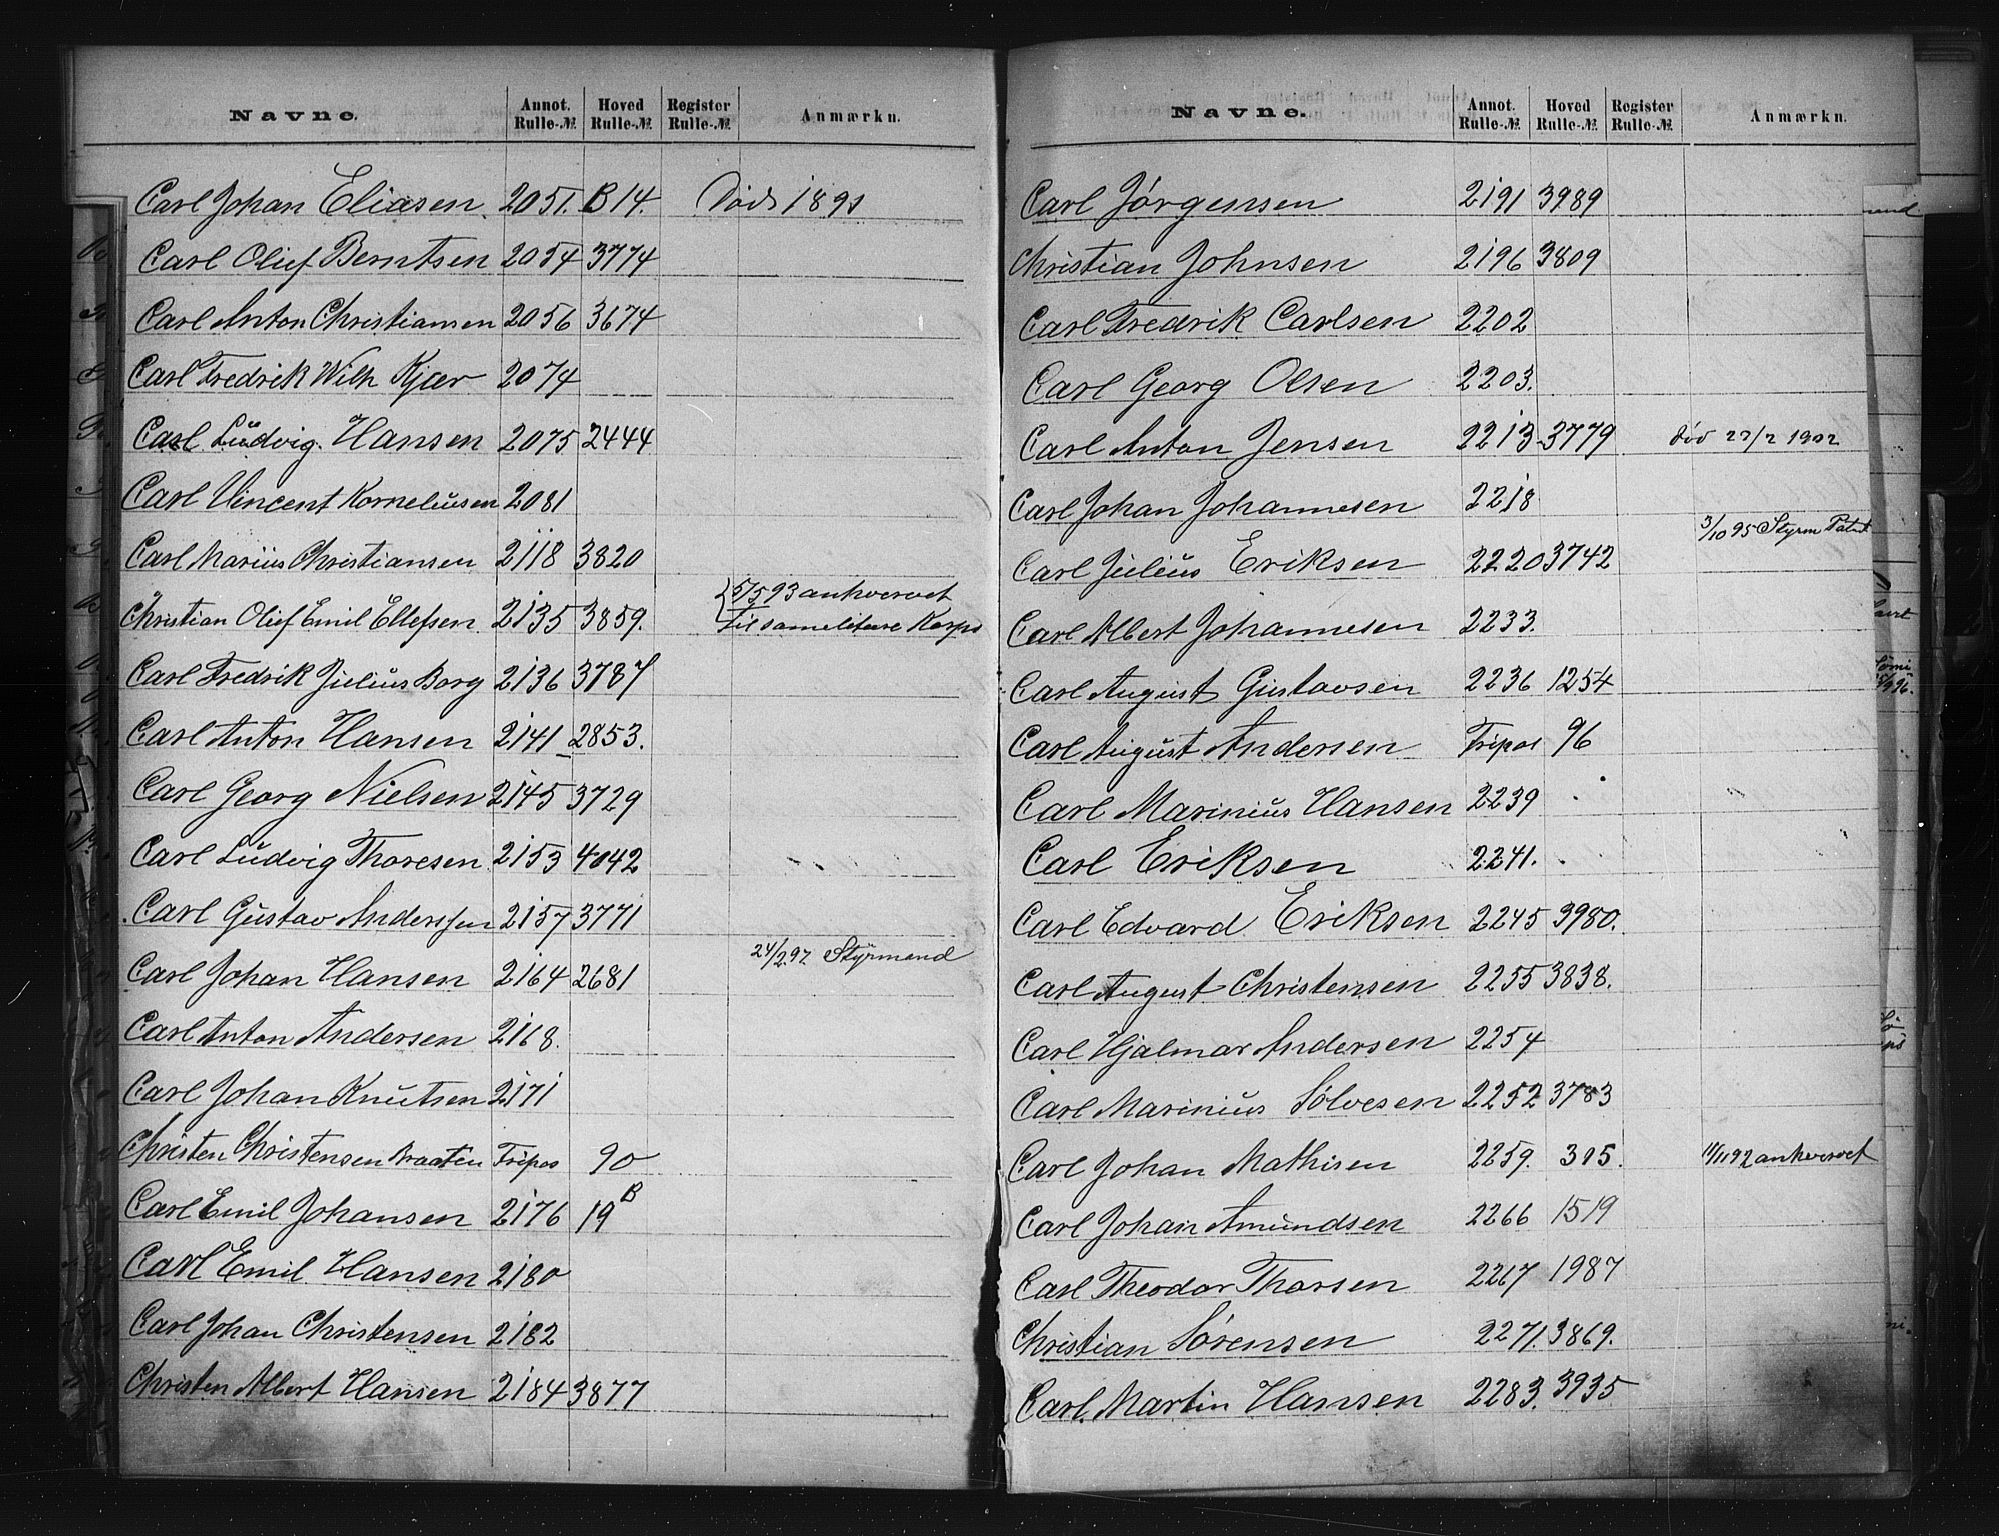 Navne. Annot. Rulle-№ Hoved Rulle-№ Register Rulle-№ Anmærkn.
Carl Johan Eliasen 2051. B14. Död 1891
Carl Oluf Berntsen 2054 3774
Carl Anton Christiansen 2056 3674
Carl Fredrik Wilh Kjær 2074
Carl Ludvig Hansen 2075 2444
Carl Vincent Korneliusen 2081
Carl Marius Christiansen 2118 3820
Christian Oluf Emil Ellefsen 2135 3859. 5/5 93 ankvervet
til samelitære Korps
Carl Fredrik Julius Borg 2136 3787
Carl Anton Hansen 2141 2853.
Carl Georg Nielsen 2145 3729
Carl Ludvig Thoresen 2153 4042
Carl Gustav Anderssen 2157 3771
Carl Johan Hansen 2164 2681 24/2 97 Styrmand
Carl Anton Andersen 2168.
Carl Johan Knutsen 2171
Christen Christensen Braaten Fripas 90
Carl Emil Johansen 2176 19B
Carl Emil Hansen 2180
Carl Johan Christensen 2182
Christen Albert Hansen 2184 3877
Navne. Annot. Rulle-№ Hoved Rulle-№ Register Rulle-№ Anmærkn.
Carl Jørgensen 2191 3989
Christian Johnsen 2196 3809
Carl Fredrik Carlsen 2202
Carl Georg Olsen 2203.
Carl Anton Jensen 2213 3779 död 22/2 1902
Carl Johan Johannesen 2218
Carl Julius Eriksen 2220 3742 3/10 95 Styrm Patent
Carl Albert Johannesen 2233.
Carl August Gustavsen 2236 1254
Carl August Andersen Fripas 96
Carl Marinius Hansen 2239
Carl Eriksen 2241.
Carl Edvard Eriksen 2245 3980.
Carl August Christensen 2255 3838.
Carl Hjalmar Andersen 2254
Carl Marinius Sølvesen 2252 3783
Carl Johan Mathisen 2259. 305. 11/11 92 ankvervet
Carl Johan Amundsen 2266 1519
Carl Theodor Thorsen 2267 1987
Christian Sørensen 2271. 3869.
Carl Martin Hansen 2283. 3935